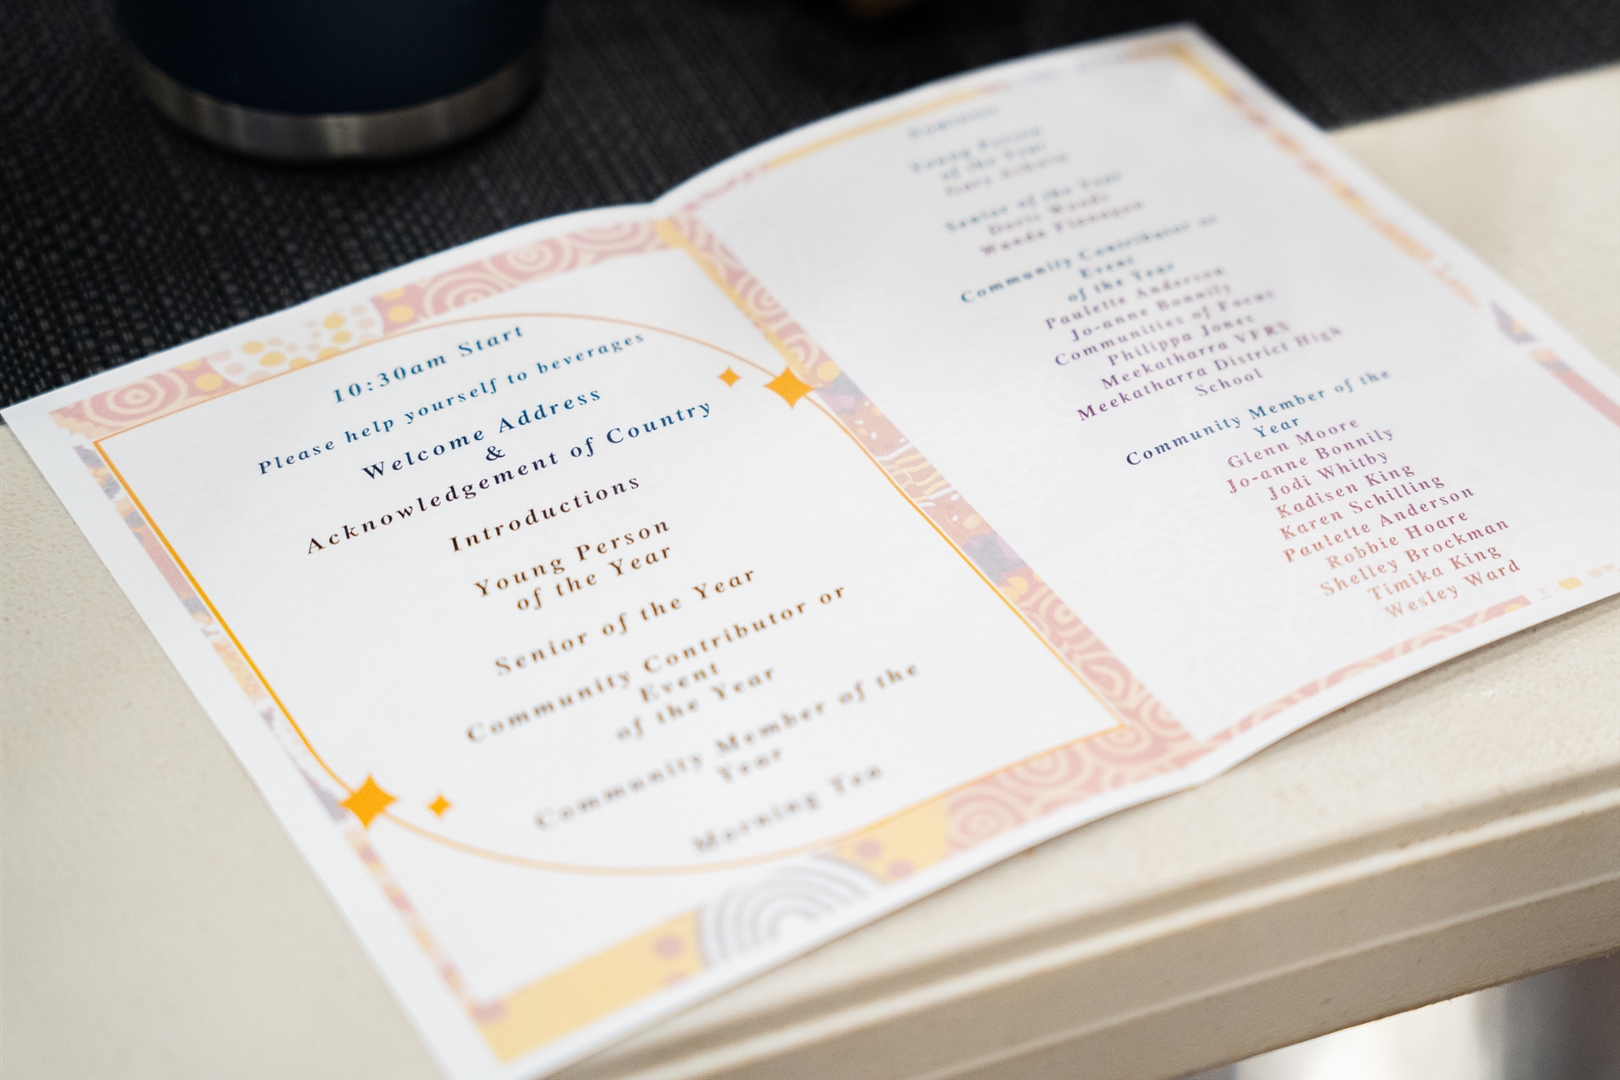 10:30am Start
Please help yourself to beverages
Welcome Address
&
Acknowledgement of Country
Introductions
Young Person
of the Year
Senior of the Year
Community Contributor or
Event
of the Year
Community Member of the
Year
Morning Tea
Young Person
of the Year
Senior of the Year
Doris Woods
Wanda Flannagan
Community Contributor or
Event
of the Year
Paulette Anderson
Jo-anne Bonnily
Communities of Focus
Philippa Jones
Meekatharra VFRS
Meekatharra District High
School
Community Member of the
Year
Glenn Moore
Jo-anne Bonnily
Jodi Whitby
Kadisen King
Karen Schilling
Paulette Anderson
Robbie Hoare
Shelley Brockman
Timika King
Wesley Ward